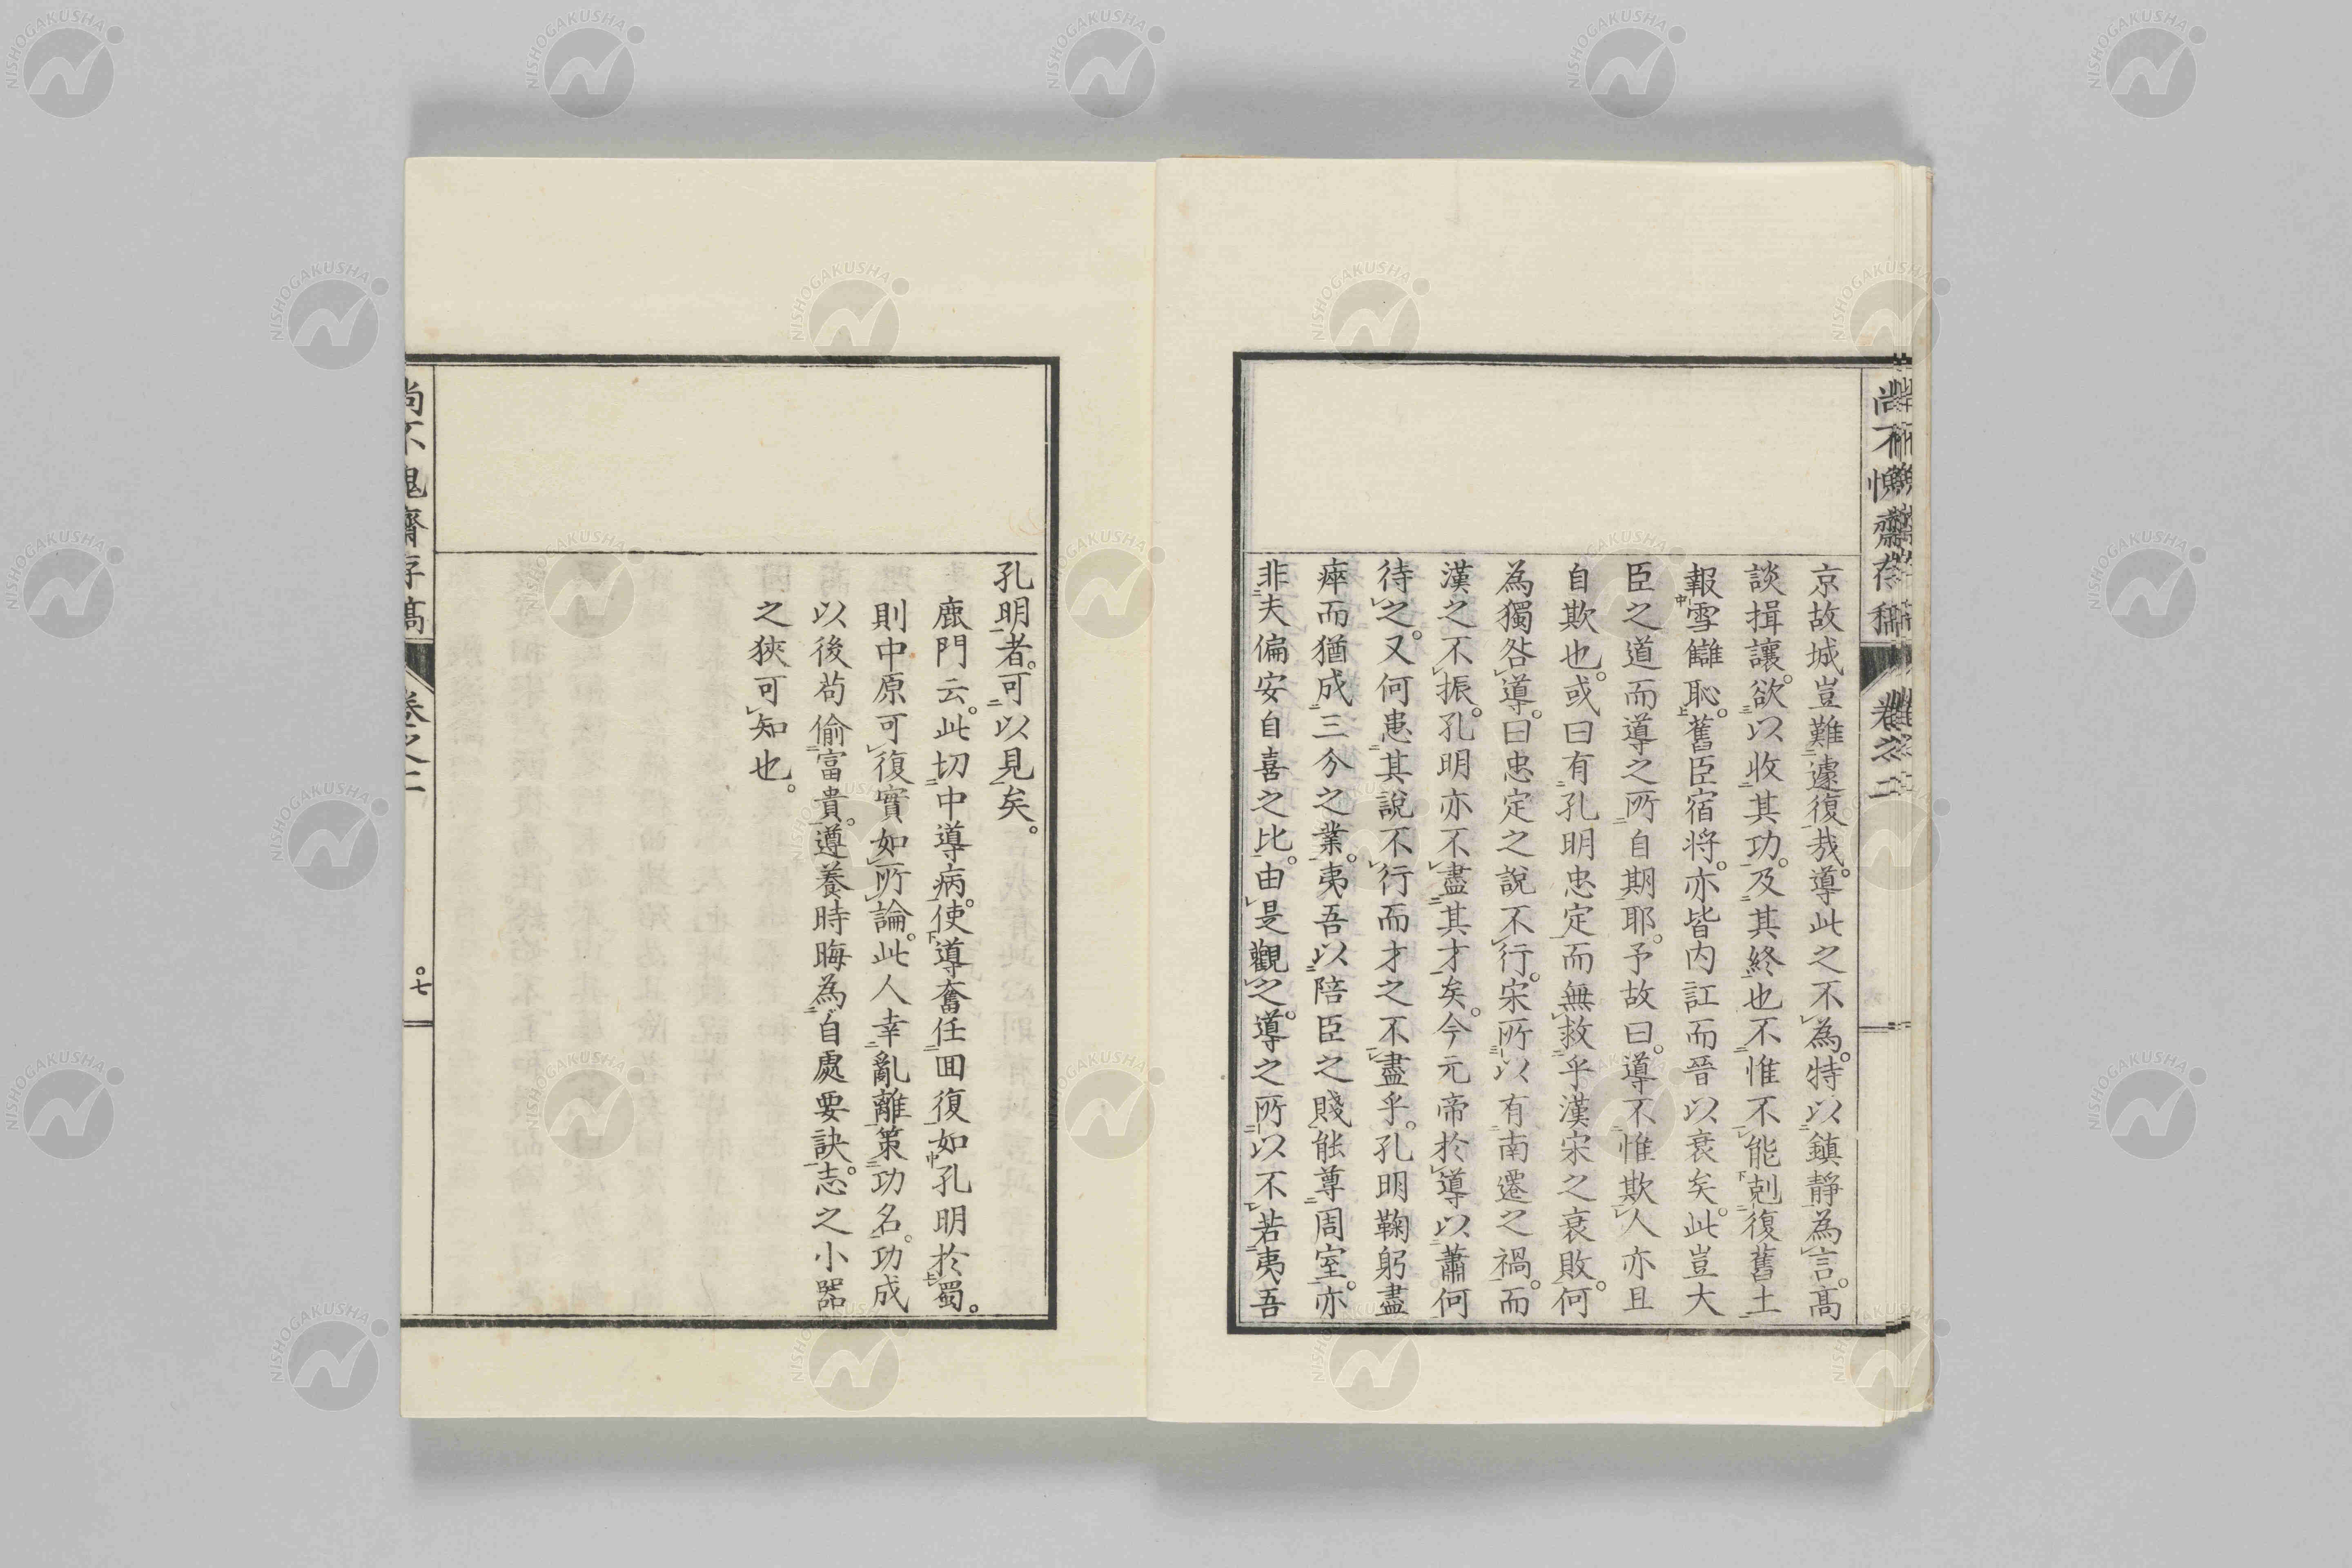 京故城豈難遽復哉。導此之不為。特以鎮靜為言。高
談揖讓。欲以收其功。及其終也不惟不能剋復舊土
報雪讎恥。舊臣宿将。亦皆内訌而晉以衰矣。此豈大
臣之道而導之所自期耶。予故曰。導不惟欺人亦且
自欺也。或曰有孔明忠定而無救乎漢宋之衰敗。何
為獨咎導。曰忠定之說不行。宋所以有南遷之禍。而
漢之不振。孔明亦不盡其才矣。今元帝於導以蕭何
待之。又何患其說不行而才之不盡乎。孔明鞠躬盡
瘁而猶成三分之業。夷吾以陪臣之賤能尊周室。亦
非夫偏安自喜之比。由是觀之。導之所以不若夷吾
孔明者。可以見矣。
鹿門云。此切中導病。使導奮任回復如孔明於蜀。
則中原可復實如所論。此人幸亂離策功名。功成
以後苟偷富貴。遵養時晦為自處要訣。志之小器
之狹可知也。
尚不愧齋存稿
卷之二
七
NISHOGAKUSHA